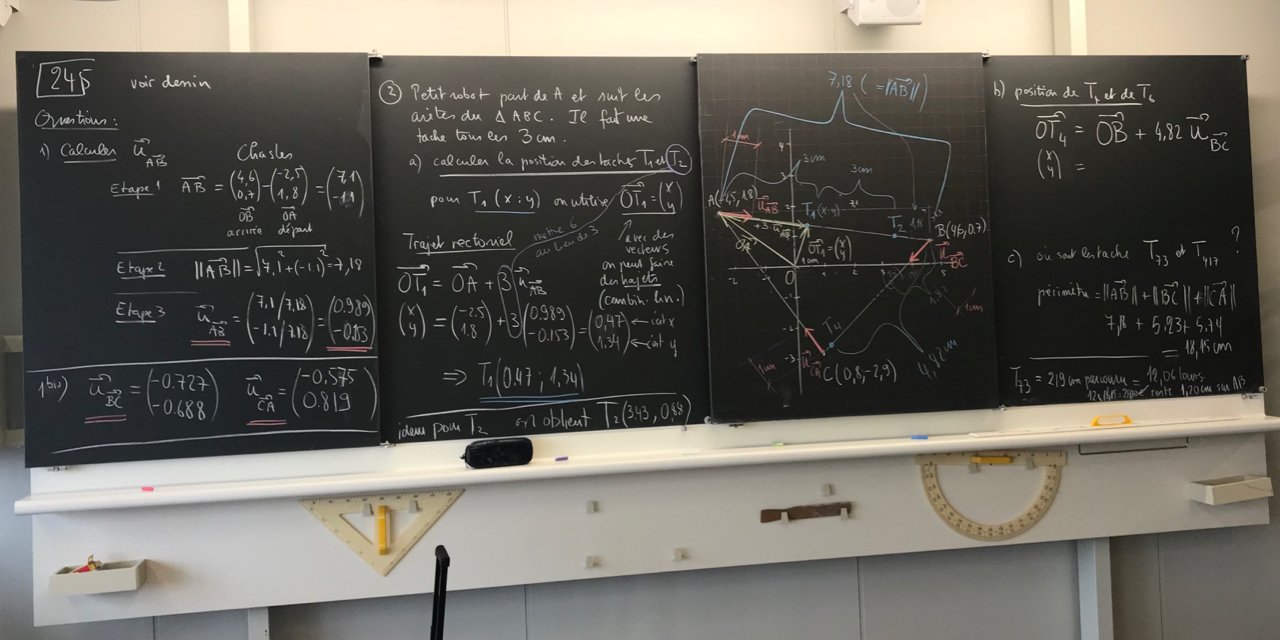 245 voir dessin
Questions :
1) Calculer u⃗_AB
Chasles
Etape 1 AB⃗ = (4,6 0,7) - (-2,5 1,8) = (7,1 -1.1)
OB⃗ OA⃗
arrivée départ
Etape 2 ||AB⃗|| = √7,1²+(-1.1)² = 7,18
Etape 3 u⃗_AB = (7,1/7,18 -1.1/7.18) = (0.989 -0.153)
1bis) u⃗_BC = (-0.727 -0.688) u⃗_CA = (-0,575 0.819)
2) Petit robot part de A et suit les
arêtes du Δ ABC. Il fait une
tache tous les 3 cm.
a) calculer la position des taches T1 et T2
pour T1 (x ; y) on utilise OT1⃗ = (x y)
mettre 6
au lieu de 3
Trajet vectoriel
avec des
vecteurs
on peut faire
des trajets
(combin. lin.)
OT1⃗ = OA⃗ + 3 u⃗_AB
(x y) = (-2,5 1.8) + 3 (0.989 -0.153) = (0,47 1,34)
⇒ T1 (0.47 ; 1,34)
idem pour T2 on obtient T2 (3.43 , 0.88)
7,18 (= ||AB⃗||)
1 cm
3 cm
3 cm
A(-2,5, 1.8)
u⃗_AB
T1 (x;y)
T2
B(4.6, 0.7)
OA⃗
+3·u⃗_AB
OT1⃗ = (x y)
u⃗_BC
1 cm
T4
u⃗_CA
1 cm
C (0,8, -2,9)
4,82 cm
b) position de T4 et de T6
OT4⃗ = OB⃗ + 4,82 u⃗_BC
(x y) =
c) où sont les tache T73 et T417 ?
périmètre = ||AB⃗|| + ||BC⃗|| + ||CA⃗||
7,18 + 5,23 + 5.74
= 18,15 cm
T73 = 219 cm parcouru = 12,06 tours.
reste 1,20 cm sur AB